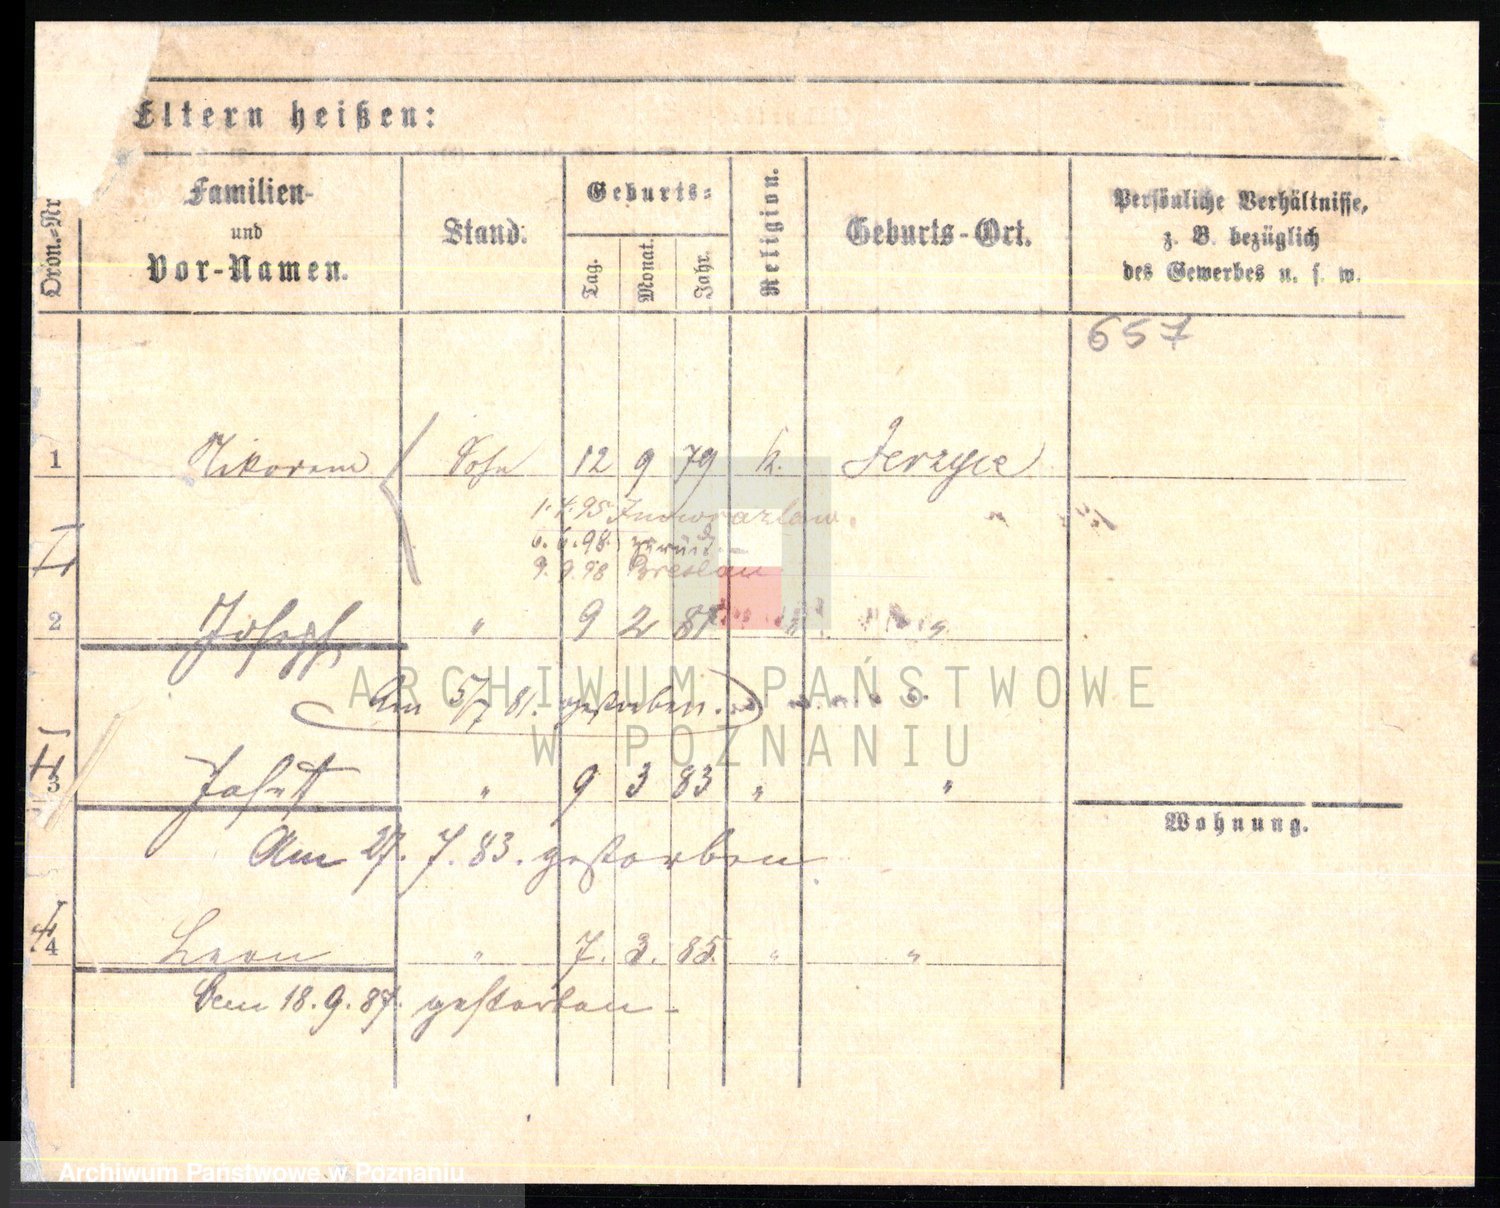 Eltern heißen:
Ordn.-Nr
Familien-
und
Vor-Namen.
Stand.
Geburts-
Tag.
Monat.
Jahr.
Religion.
Geburts-Ort.
Persönliche Verhältnisse,
z. B. bezüglich
des Gewerbes u. s. w.
657
1 Sohn 12 9 79 k. Jerzyce
1.4.95 Inowrazlaw.
6.6.98. zurück.
9.9.98 Breslau
2 Joseph " 9 2 81
Am 5/7 81. gestorben.
3 Josef " 9 3 83 " "
Wohnung.
Am 27. 7. 83. gestorben
4 Leon " 7. 3. 85. " "
Am 18. 9. 87. gestorben -
ARCHIWUM PAŃSTWOWE
W POZNANIU
Archiwum Państwowe w Poznaniu